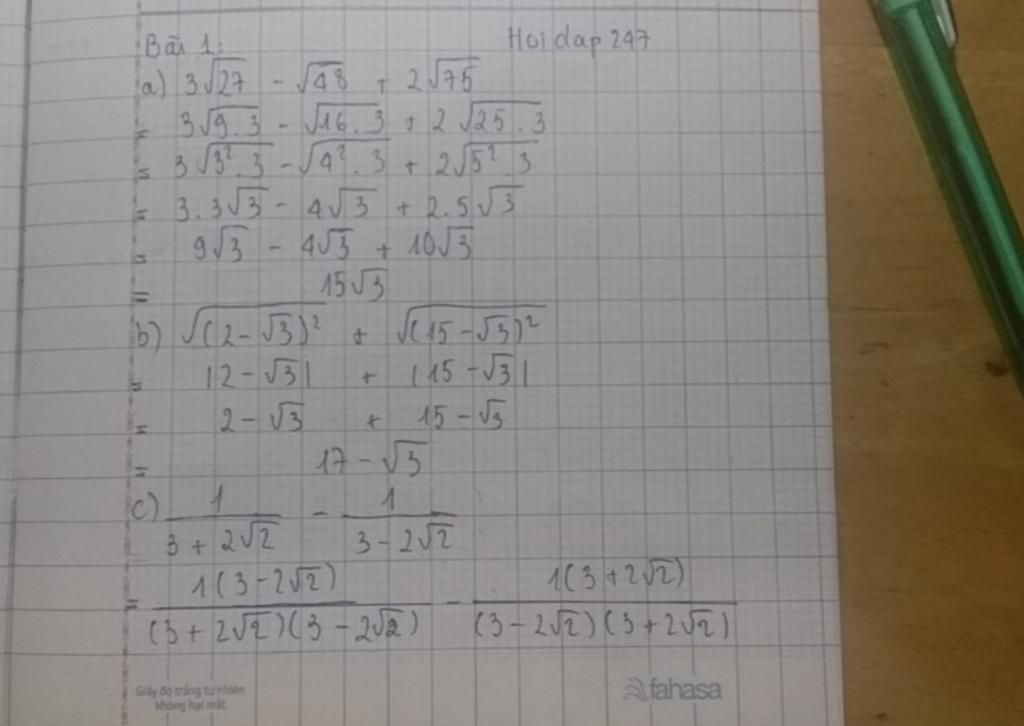 Bài 1: Hoidap247
a) 3√27 - √48 + 2√75
= 3√9.3 - √16.3 + 2√25.3
= 3√3².3 - √4².3 + 2√5².3
= 3.3√3 - 4√3 + 2.5√3
= 9√3 - 4√3 + 10√3
= 15√3
b) √(2-√3)² + √(15-√3)²
= |2-√3| + |15-√3|
= 2-√3 + 15-√3
= 17-√3
c) 1/(3+2√2) - 1/(3-2√2)
= 1(3-2√2)/(3+2√2)(3-2√2) - 1(3+2√2)/(3-2√2)(3+2√2)
Giấy độ trắng tự nhiên
không hại mắt
fahasa